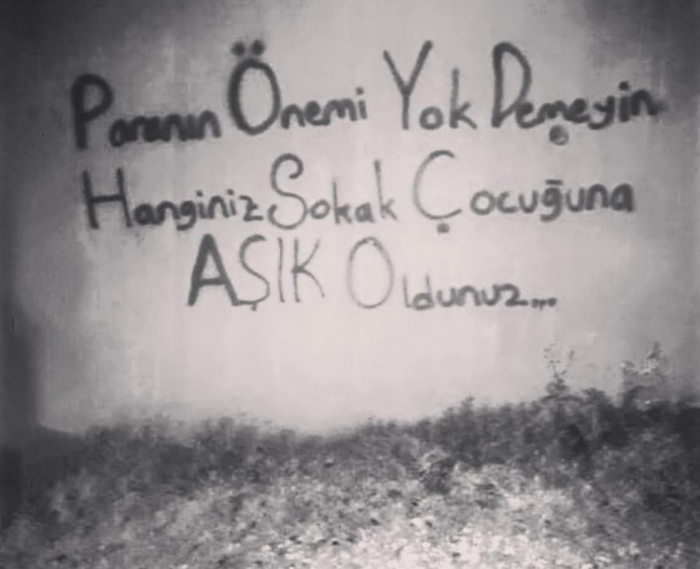 Paranın Önemi Yok Demeyin
Hanginiz Sokak Çocuğuna
AŞIK Oldunuz...